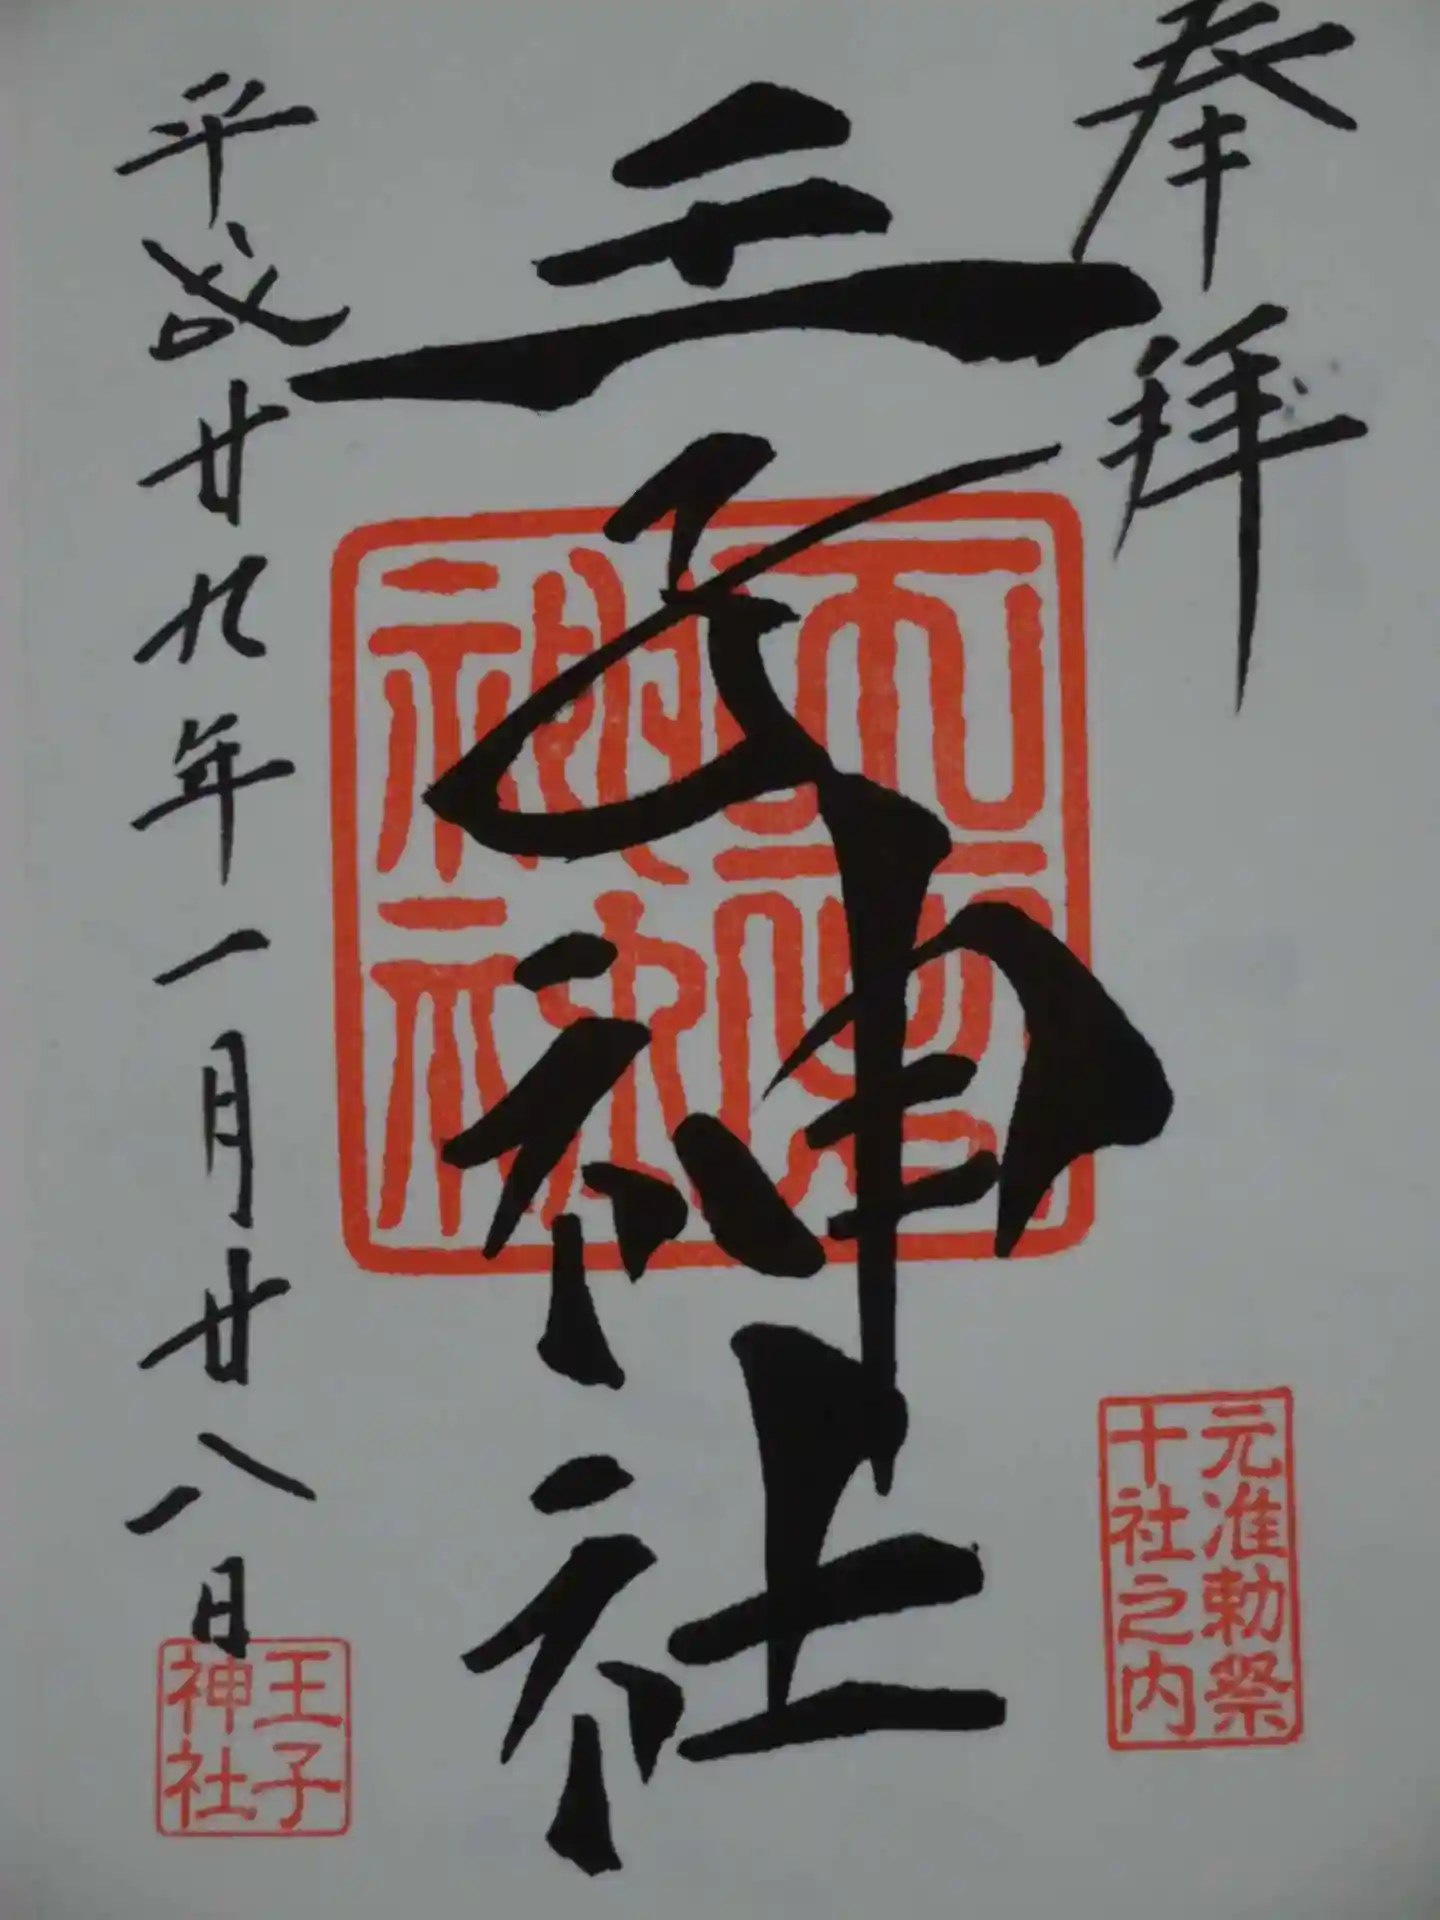 奉拝
王子神社
平成廿九年一月廿八日
元准勅祭
十社之内
王子
神社